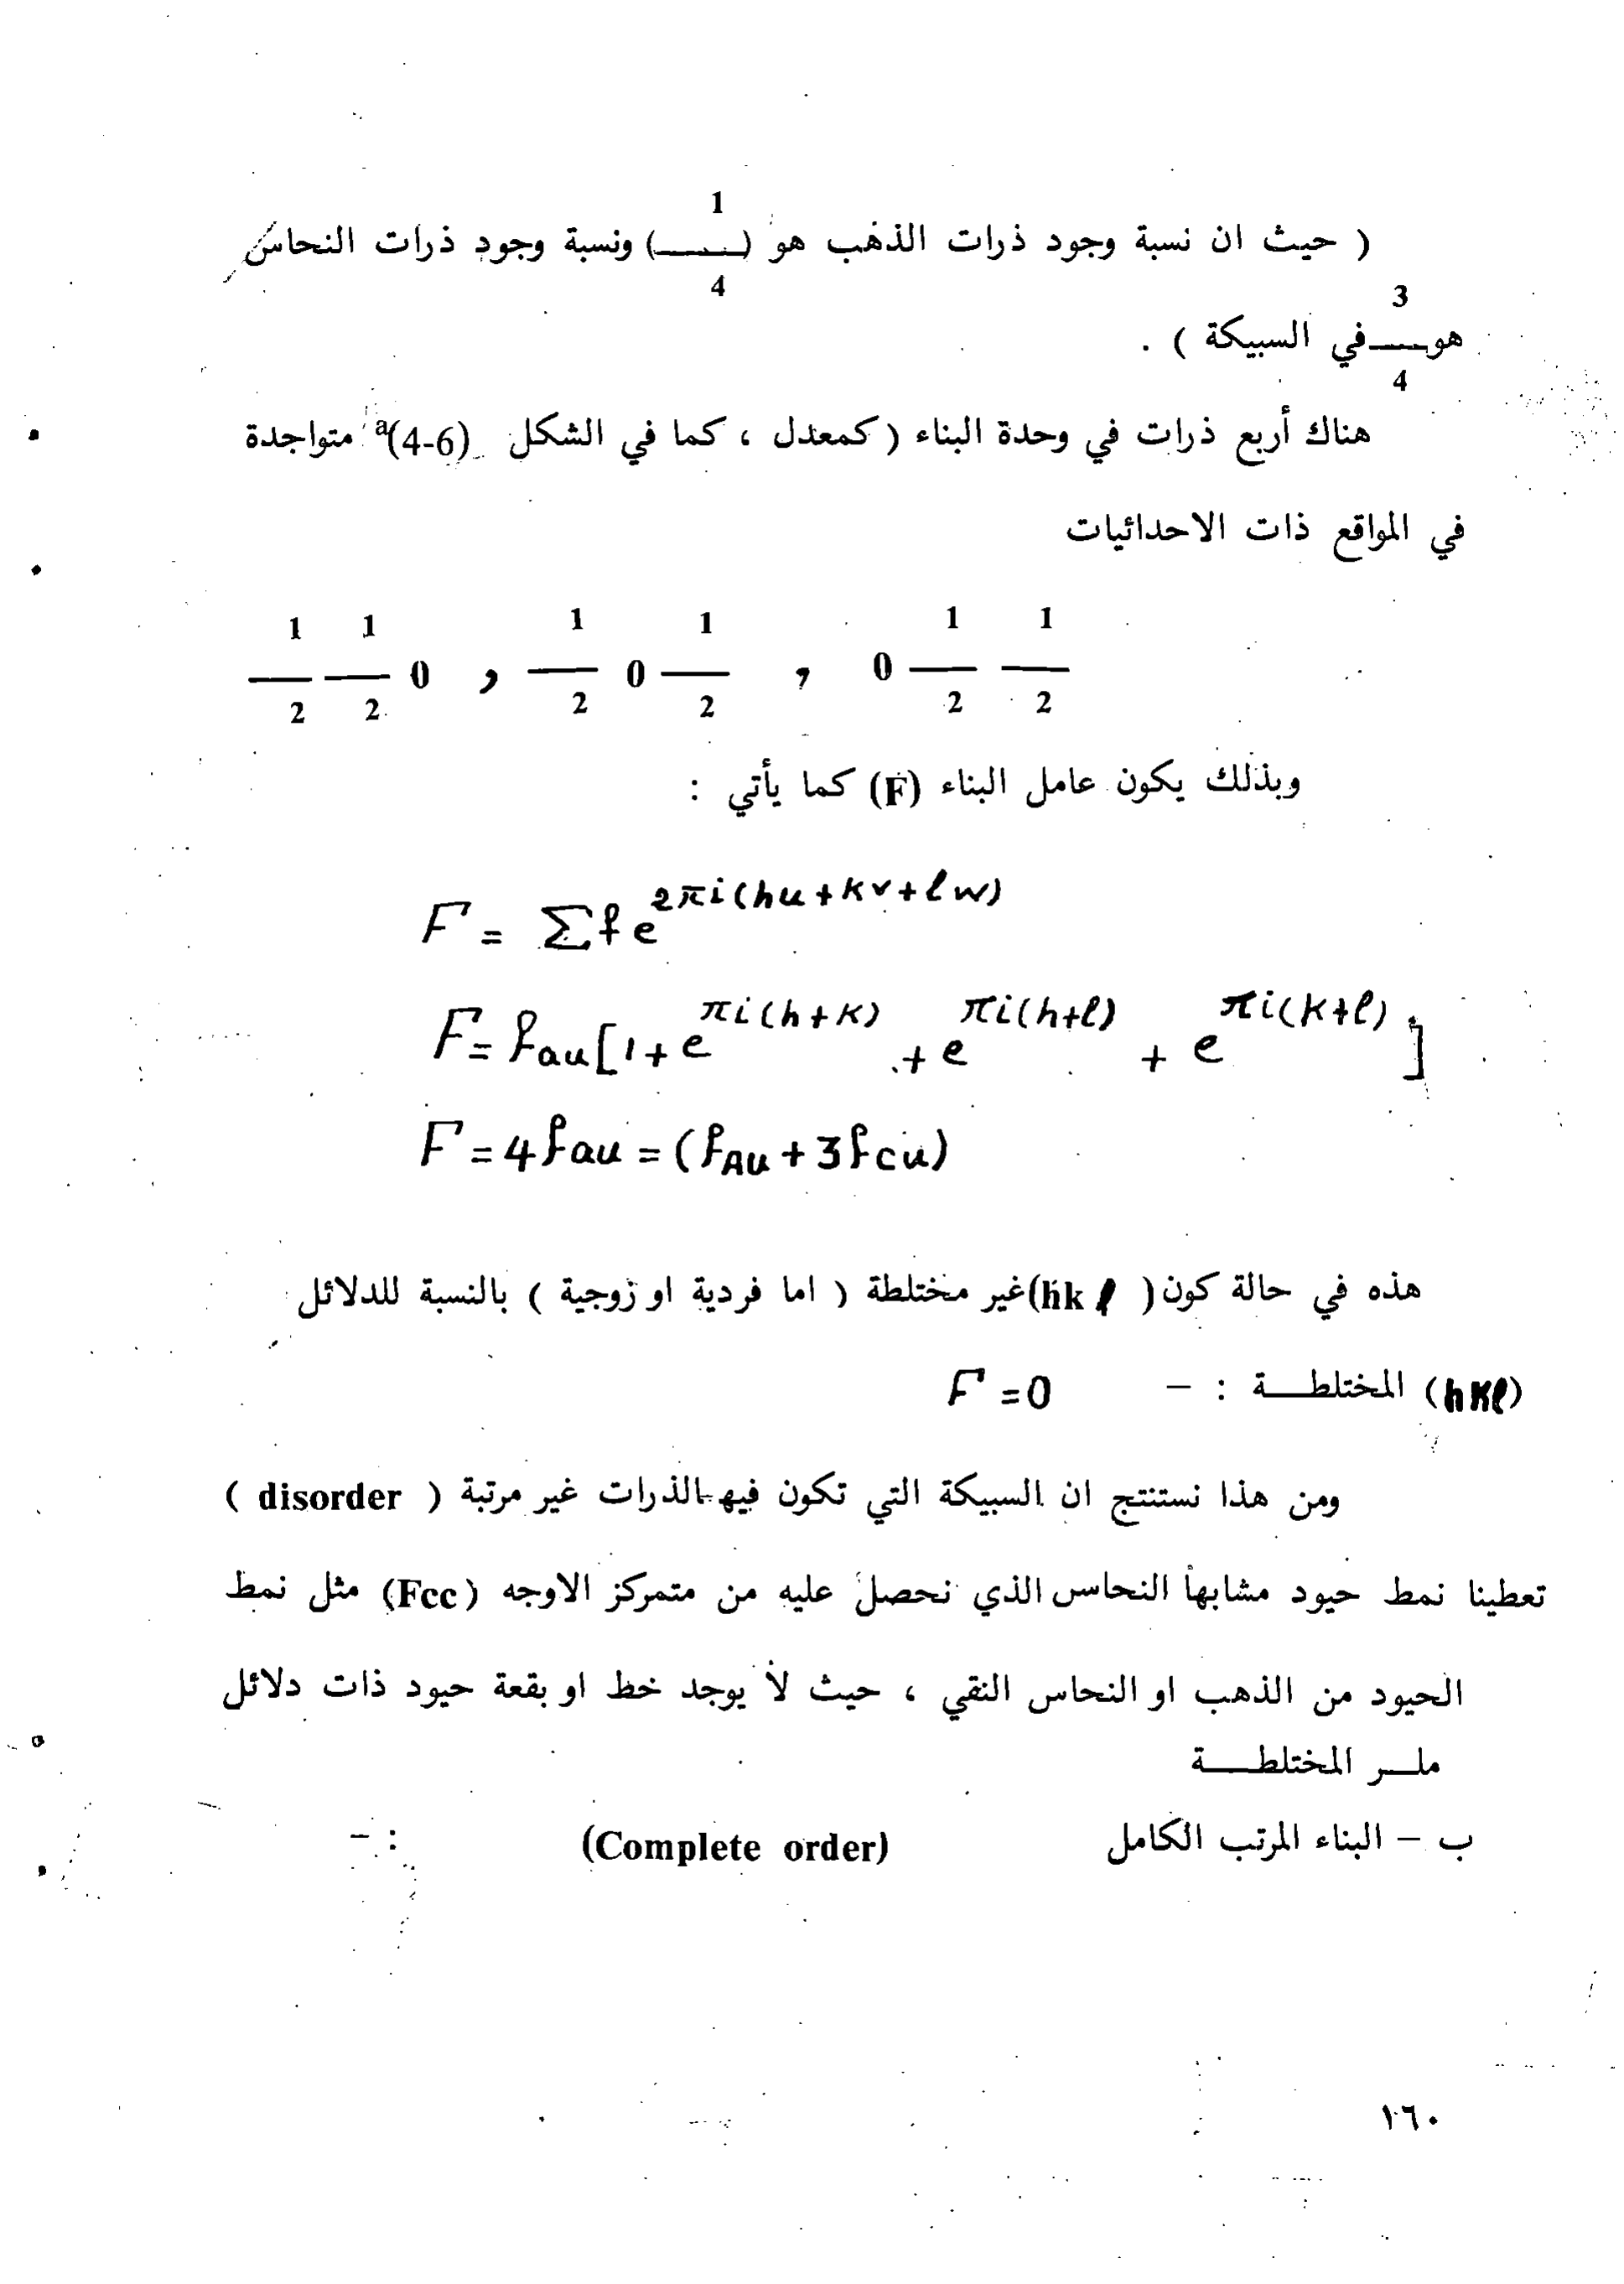 ( حيث ان نسبة وجود ذرات الذهب هو (1/4) ونسبة وجود ذرات النحاس
هو 3/4 في السبيكة ) .
هناك أربع ذرات في وحدة البناء ( كمعدل ، كما في الشكل (4-6)a متواجدة
في المواقع ذات الاحداثيات
1/2 1/2 0 , 1/2 0 1/2 , 0 1/2 1/2
وبذلك يكون عامل البناء (F) كما يأتي :
F = Σ f e^{2πi(hu+kv+lw)}
F = f_{au} [1 + e^{πi(h+k)} + e^{πi(h+l)} + e^{πi(k+l)}]
F = 4 f_{au} = (f_{Au} + 3 f_{Cu})
هذه في حالة كون ( hk l) غير مختلطة ( اما فردية او زوجية ) بالنسبة للدلائل
(hKl) المختلطـــة : – F = 0
ومن هذا نستنتج ان السبيكة التي تكون فيها الذرات غير مرتبة ( disorder )
تعطينا نمط حيود مشابها النحاس الذي نحصل عليه من متمركز الاوجه (Fcc) مثل نمط
الحيود من الذهب او النحاس النقي ، حيث لا يوجد خط او بقعة حيود ذات دلائل
ملـــر المختلطـــة
ب – البناء المرتب الكامل (Complete order) : –
١٦٠